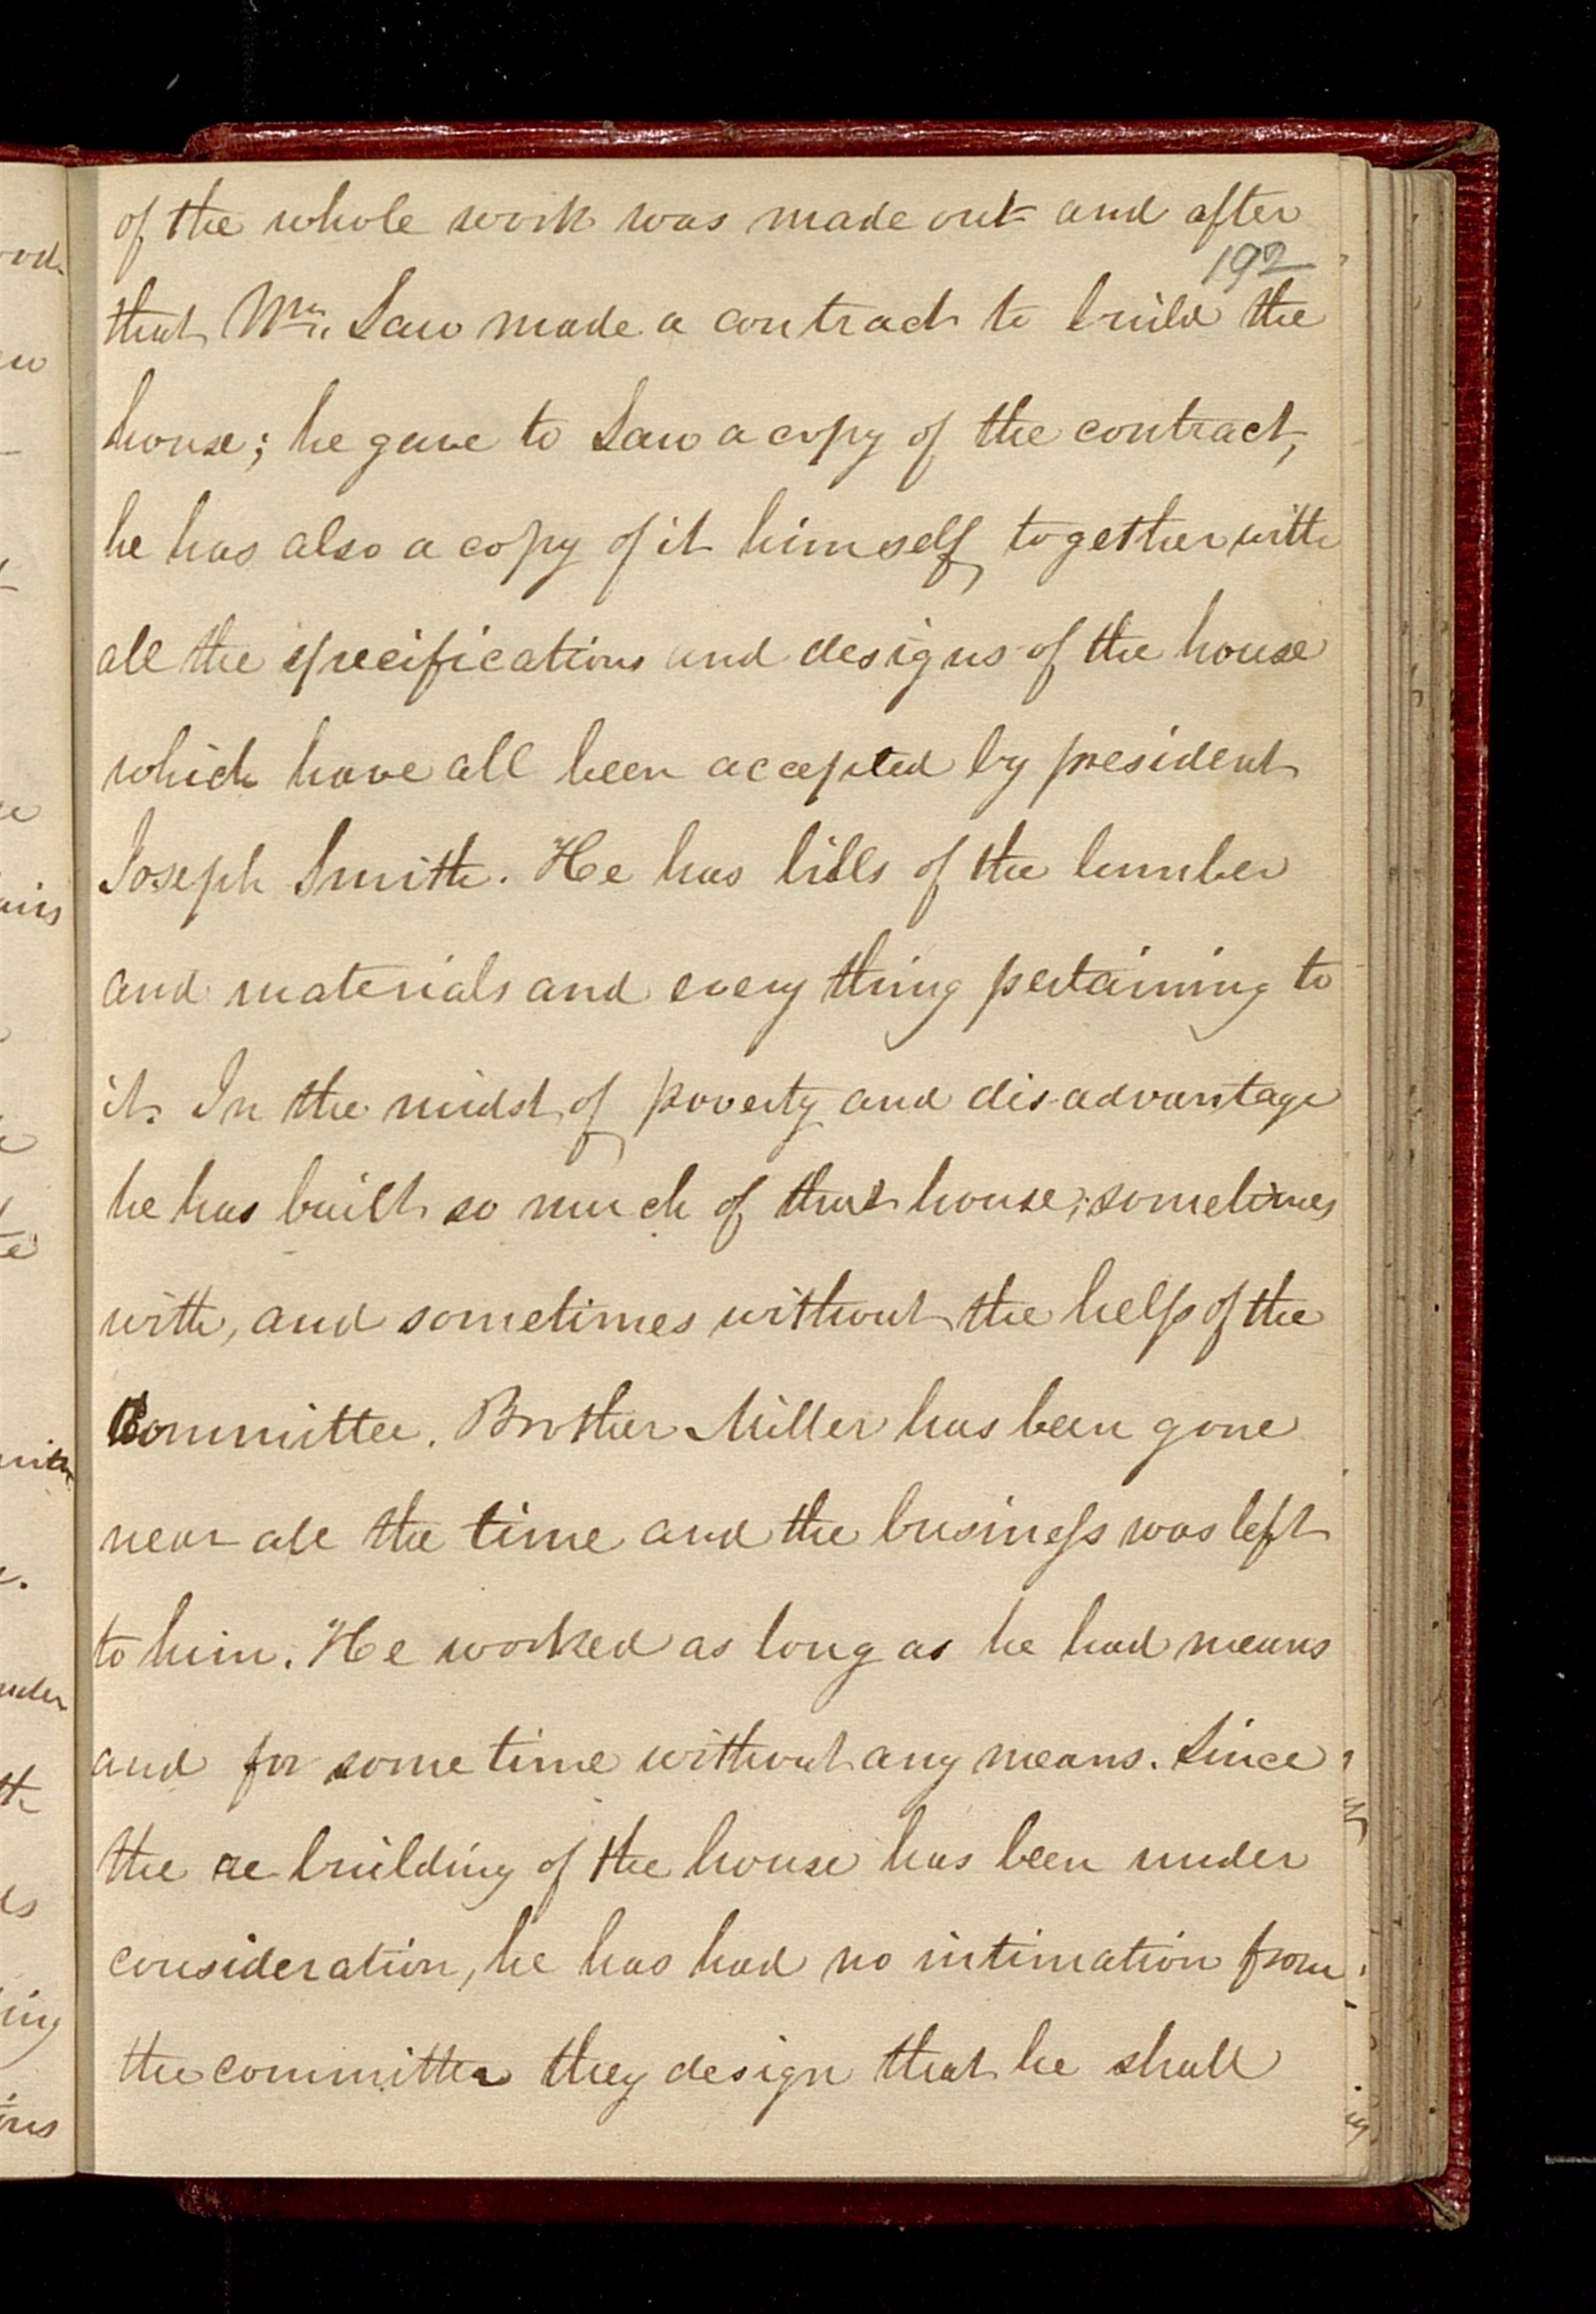 of the whole work was made out and after
192
that Wm. Law made a contract to build the
house; he gave to Law a copy of the contract,
he has also a copy of it himself, together with
all the specifications and designs of the house
which have all been accepted by president
Joseph Smith. He has bills of the lumber
and materials and every thing pertaining to
it. In the midst of poverty and disadvantage
he has built so much of that house; sometimes
with, and sometimes without the help of the
Committee. Brother Miller has been gone
near all the time and the business was left
to him. He worked as long as he had means
and for some time without any means. Since
the re-building of the house has been under
consideration, he has had no intimation from
the committee they design that he shall